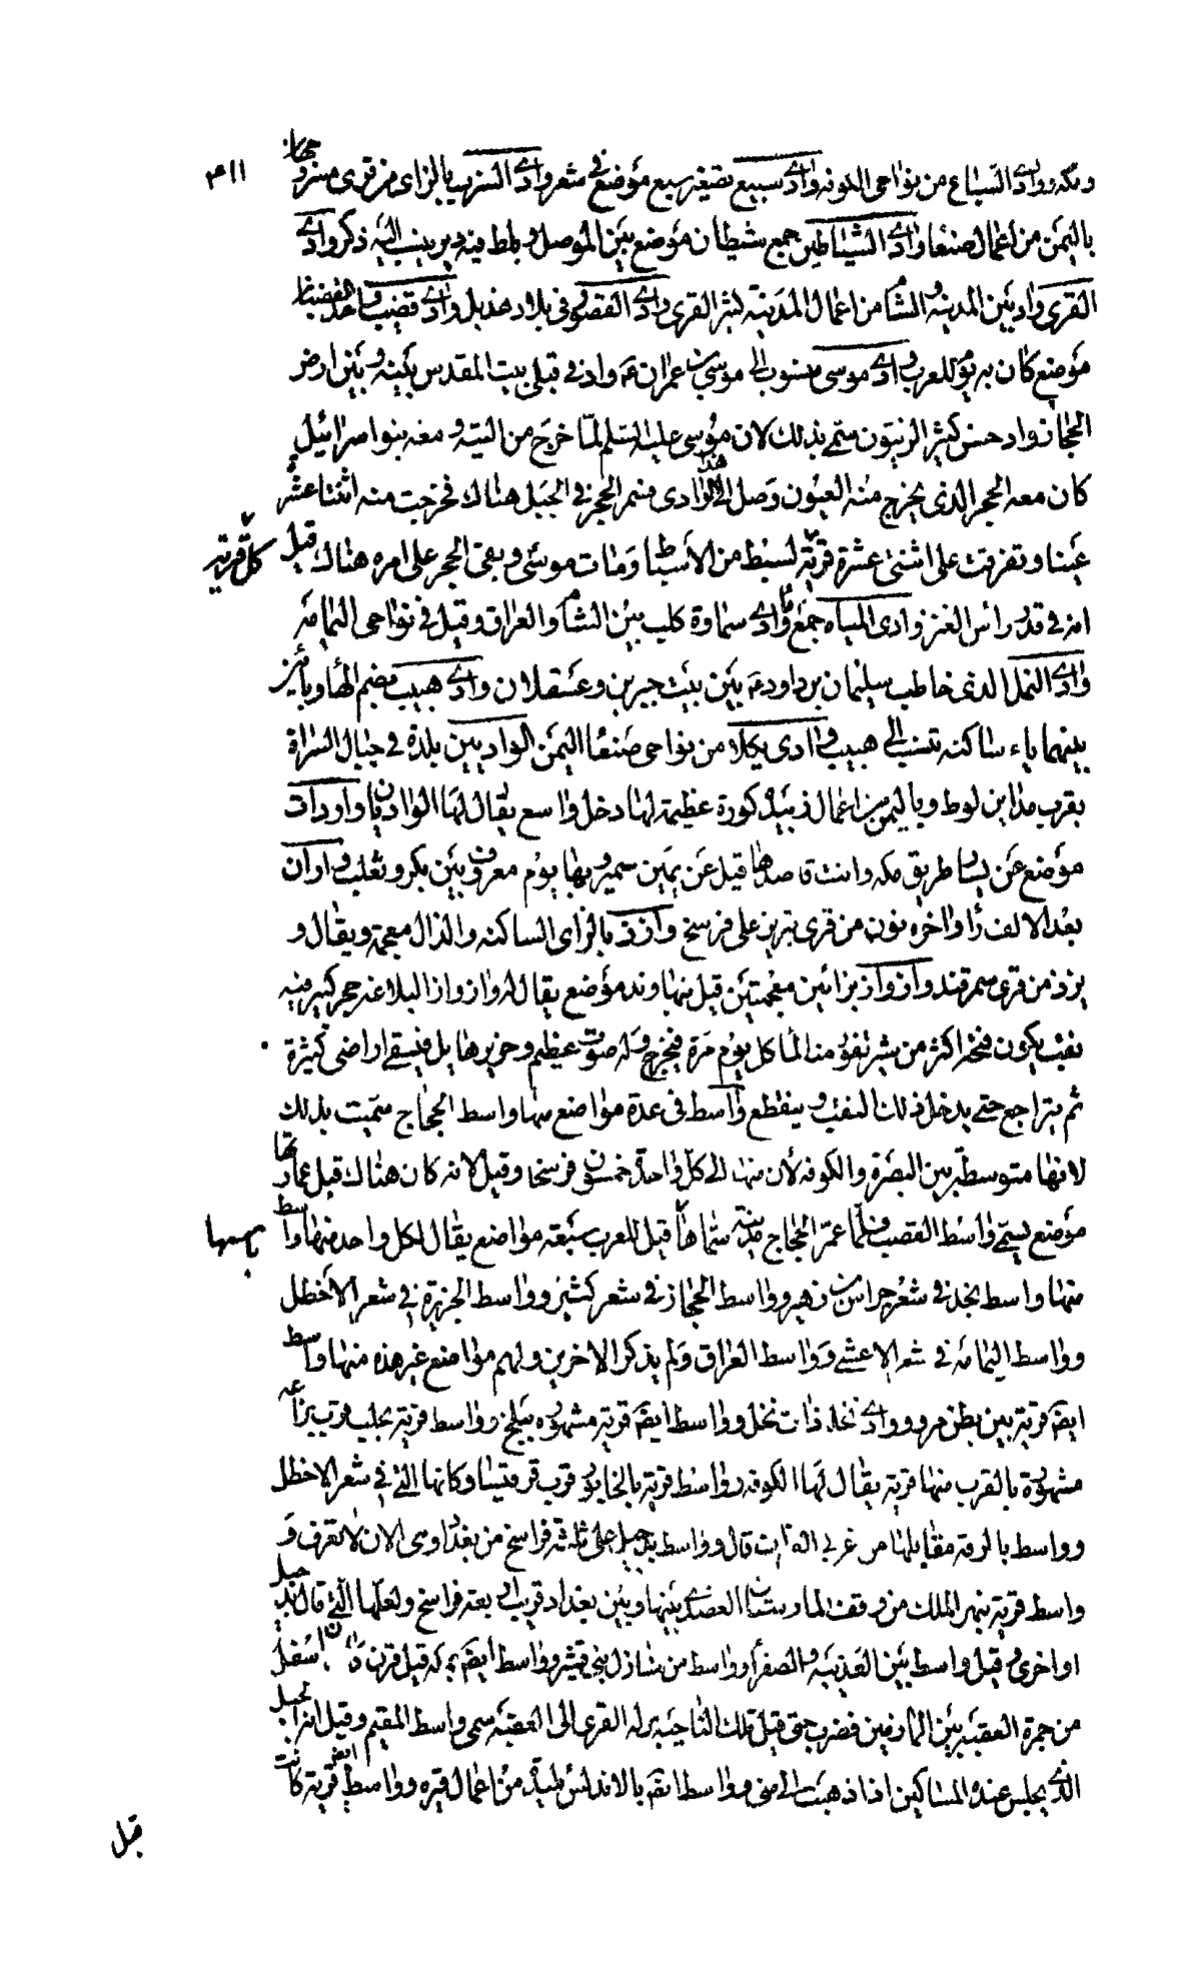 ومكه ووادى السباع من نواحى الكوفه وادى سبيع تصغير سبع موضع فى شعر وادى الشزب بالزاى من قرى مشرق جهات ٣١١
باليمن من اعمال صنعا وادى الشياطين جمع شيطان موضع بين الموصل وبلط فيه دير ينسب اليه ذكر وادى
القرى واد بين المدينه والشام من اعمال المدينة كثير القرى وادى القصور فى بلاد هذيل وادى قضيب
موضع كان به يوم للعرب وادى موسى منسوب الى موسى بن عمران عم واد فى قبلى بيت المقدس بينه وبين ارض
الحجاز واد حسن كثير الزيتون سمى بذلك لان موسى عليه السلم لما خرج من التيه ومعه بنوا سرائيل
كان معه الحجر الذى يخرج منه العيون وصل الى هذا الوادى فسمر الحجر فى الجبل هناك فخرجت منه اثنتا عشر
عينا وتفرقت على اثنتى عشرة قرية لسبط من الأسباط ومات موسى وبقى الحجر على امره هناك قيل كل قرية
انه فى قدر رأس العنز وادى المياه جمع ماء وادى سماوة كلب بين الشام والعراق وقيل فى نواحى اليمامه
وادى النمل الذى خاطب سليمان بن داود عم بين بيت جبرين وعسقلان وادى هبيب بضم الهاء وبائين
بينهما ياء ساكنه تنسب الى هبيب وادى يكلا من نواحى صنعا اليمن الواديين بلدة فى جبال السراة
بقرب مداين لوط وباليمن من اعمال زبيد كورة عظيمة لها دخل واسع يقال لها الواديان واردات
موضع عن يسار طريق مكه وانت قاصدها قيل عن يمين سميرا وبها يوم معروف بين بكر وتغلب واران
بعد الالف را واخره نون من قرى تبريز على فرسخ وازذ بالزاى الساكنه والذال معجمة ويقال و
يزذ من قرى سمرقند وازواز بزائين معجمتين قيل بنهاوند موضع يقال له وازواز البلاعه حجر كبير فيه
نقب يكون فتحه اكثر من شبر يفور منه الماء كل يوم مرة فيخرج وله صوت عظيم وخرير هايل فيسقى اراضى كثيرة
ثم يتراجع حتى يدخل ذلك النقب وينقطع واسط فى عدة مواضع منها واسط الحجاج سميت بذلك
لانها متوسطة بين البصرة والكوفه لأن منها الى كل واحدة خمسون فرسخا وقيل لانه كان هناك قبل عمارتها
موضع يسمى واسط القصب فلما عمر الحجاج مدينته سماها باسمها قيل للعرب سبعة مواضع يقال لكل واحد منها واسط
منها واسط نجد فى شعر خراش بن زهير وواسط الحجاز فى شعر كثير وواسط الجزيرة فى شعر الأخطل
وواسط اليمامه فى شعر الاعشى وواسط العراق ولم يذكر الاخرين ولهم مواضع غير هذه منها واسط
ايضا قرية بين بطن مر ووادى نخلة ذات نخل وواسط ايضا قرية مشهوره ببلخ وواسط قرية بحلب قرب بزاعه
مشهورة بالقرب منها قرية يقال لها الكوفه وواسط قرية بالخابور قرب قرقيسيا وكانها التى فى شعر الاخطل
وواسط بالرقه مقابلها من غربى الفرات قال وواسط بدجيل على ثلثة فراسخ من بغداد وهى الان لا تعرف و
واسط قرية بنهر الملك من وقف المارستان العضدى بينها وبين بغداد قريب اربعة فراسخ ولعلها التى قال دجيل
او اخرى وقيل واسط بين العذيبه والصفرا وواسط من منازل بنى قشير وواسط ايضا بمكه قيل قرن كان اسفل
من جمرة العقبه بين المازمين فضرب حتى قيل تلك الناحيه بركة القرى الى العقبه سمى واسط المقيم وقيل انه الجبل
الذى يجلس عنده المساكين اذا ذهبت الى منى وواسط ايضا بالاندلس بليدة من اعمال قبره وواسط ايضا قرية كانت
قبل